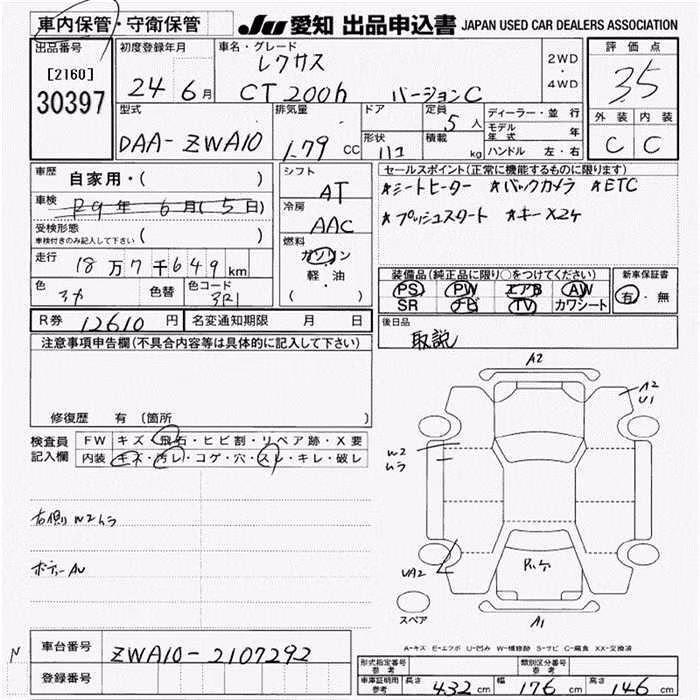 車内保管・守衛保管 JU 愛知 出品申込書 JAPAN USED CAR DEALERS ASSOCIATION
出品番号 初度登録年月 車名・グレード 評価点
[2160] 24 6月 レクサス 2WD・4WD 3.5
30397 CT200h バージョンC
型式 排気量 ドア 定員 5人 ディーラー・並行 外装 内装
DAA-ZWA10 1.79 CC 形状 積載 kg モデル年式 年 C C
ハンドル 左・右
車歴 自家用・( ) シフト AT セールスポイント(正常に機能するものに限ります)
車検 R9年 6月(5日) 冷房 AAC ★シートヒーター ★バックカメラ ★ETC
受検形態 車検付きのみ記入して下さい ( ) ★プッシュスタート ★キーX2ケ
走行 18万7千649km 燃料 ガソリン 軽・油 ( )
装備品(純正品に限り○をつけてください) 新車保証書
色 色替 色コード 3R1 PS PW エアB AW 有・無
SR ナビ TV カワシート
R券 12610円 名変通知期限 月 日 後日品
取説
注意事項申告欄(不具合内容等は具体的に記入して下さい)
修復歴 有(箇所 )
検査員記入欄 FW キズ・飛石・ヒビ割・リペア跡・X要
内装 キズ・汚レ・コゲ・穴・スレ・キレ・破レ
A2
A2
U1
W2
ムラ
右側リW2ムラ
ボディーAU
UA2
A1
スペア
A-キズ E-エクボ U-凹み W-補修跡 S-サビ C-腐食 XX-交換済
車台番号 ZWA10-2107292
N
登録番号
形式指定番号 参考 類別区分番号 参考
車庫証明用 参考 長さ 432cm 幅 176cm 高さ 146cm